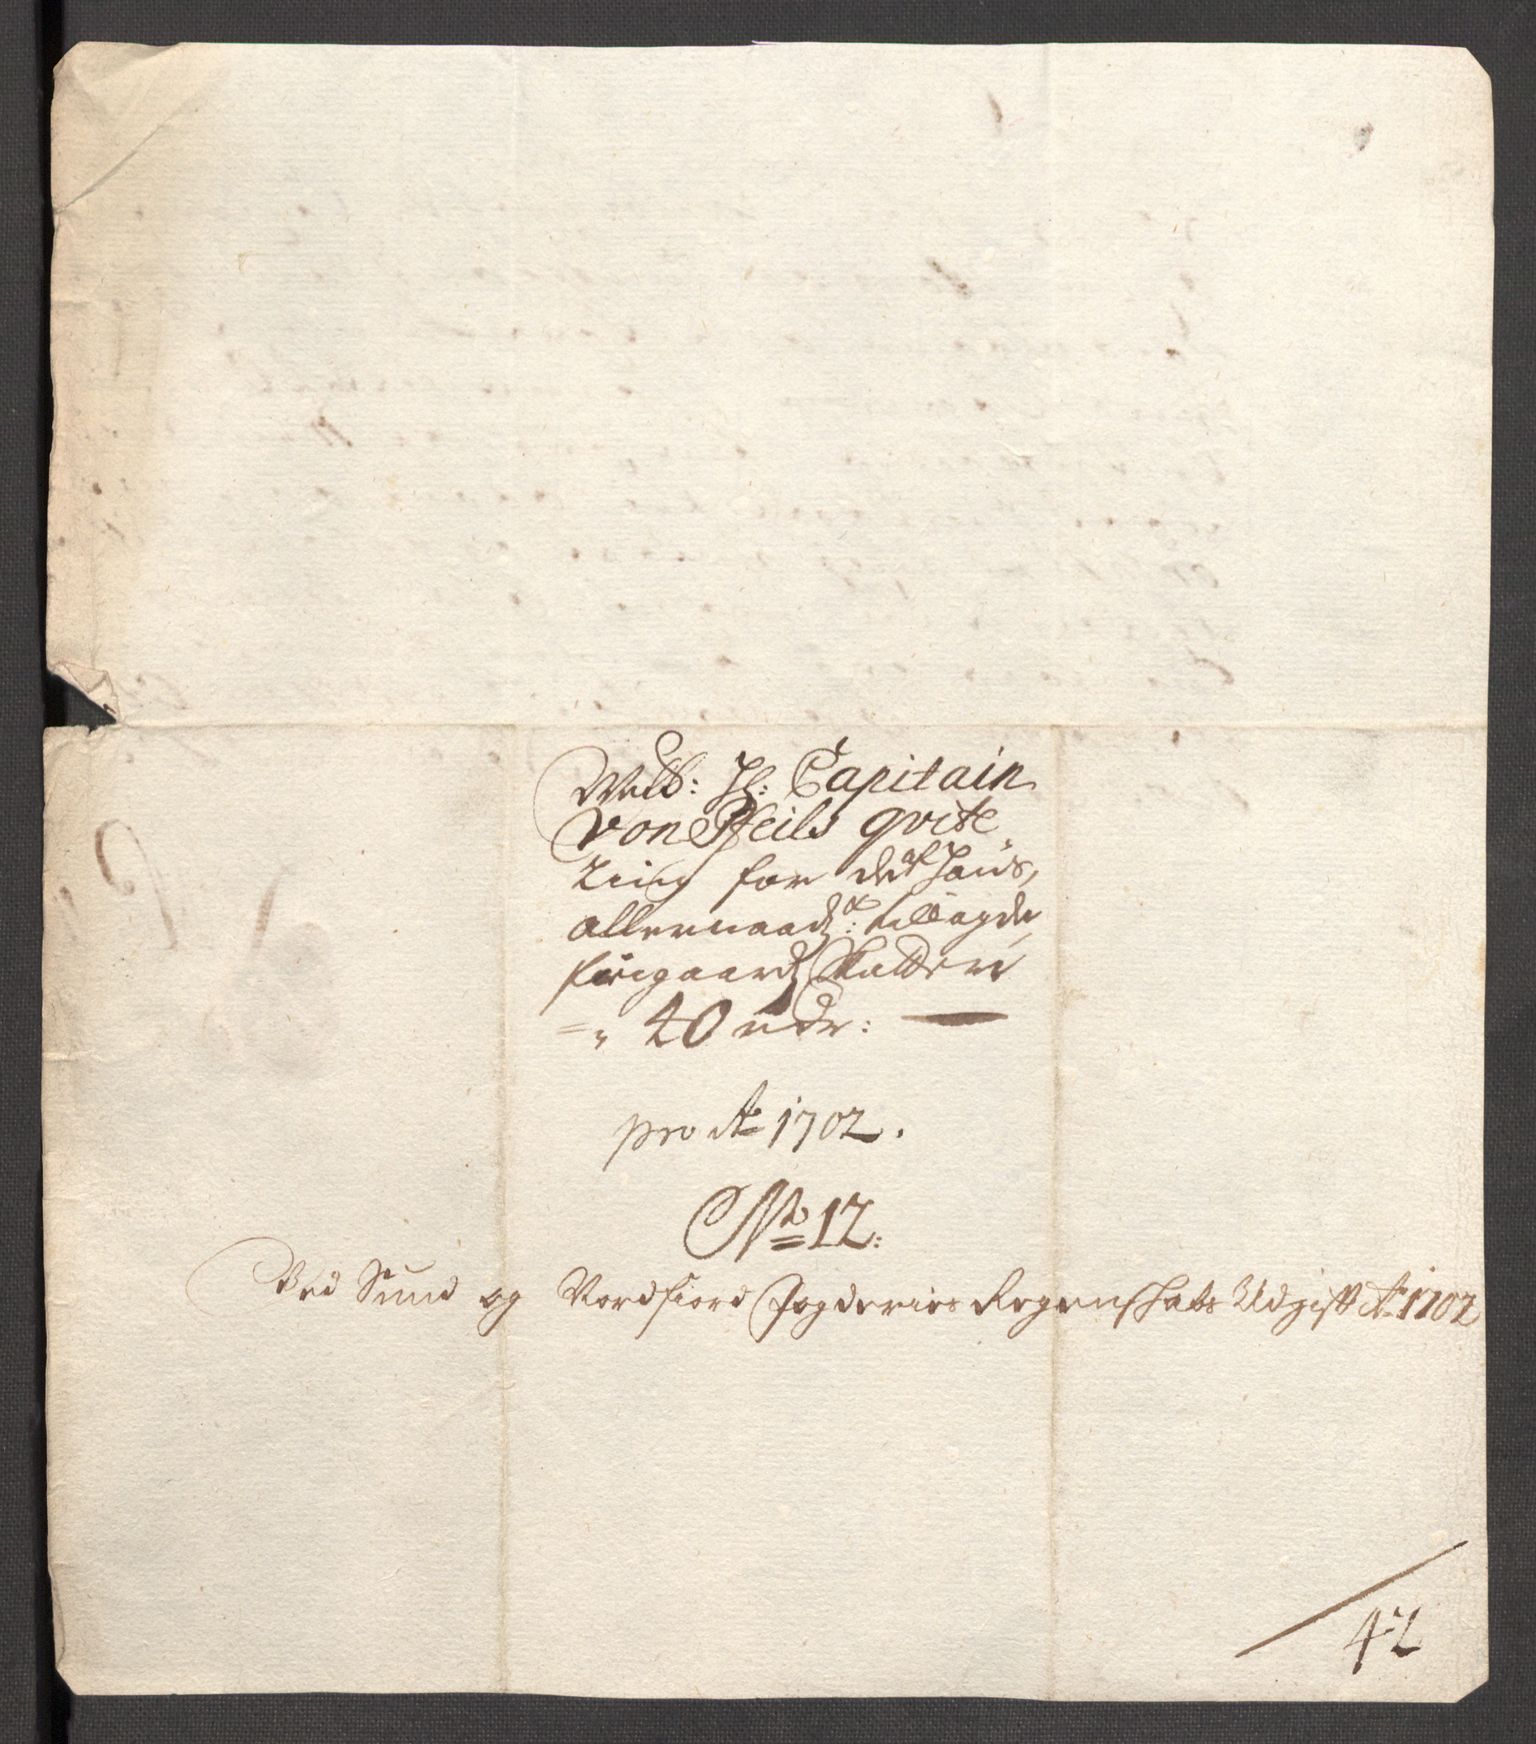 Welb: Hl: Capitain
von Pfeils qvite
ring for det Hans,
allernaadst: tillagde
friegaards Skatter
" 40 rdr: —
pro Ao 1702.
No 12:
Ved Sund og Nordfiord Fogderies Regenskabs Udgift Ao 1702
42